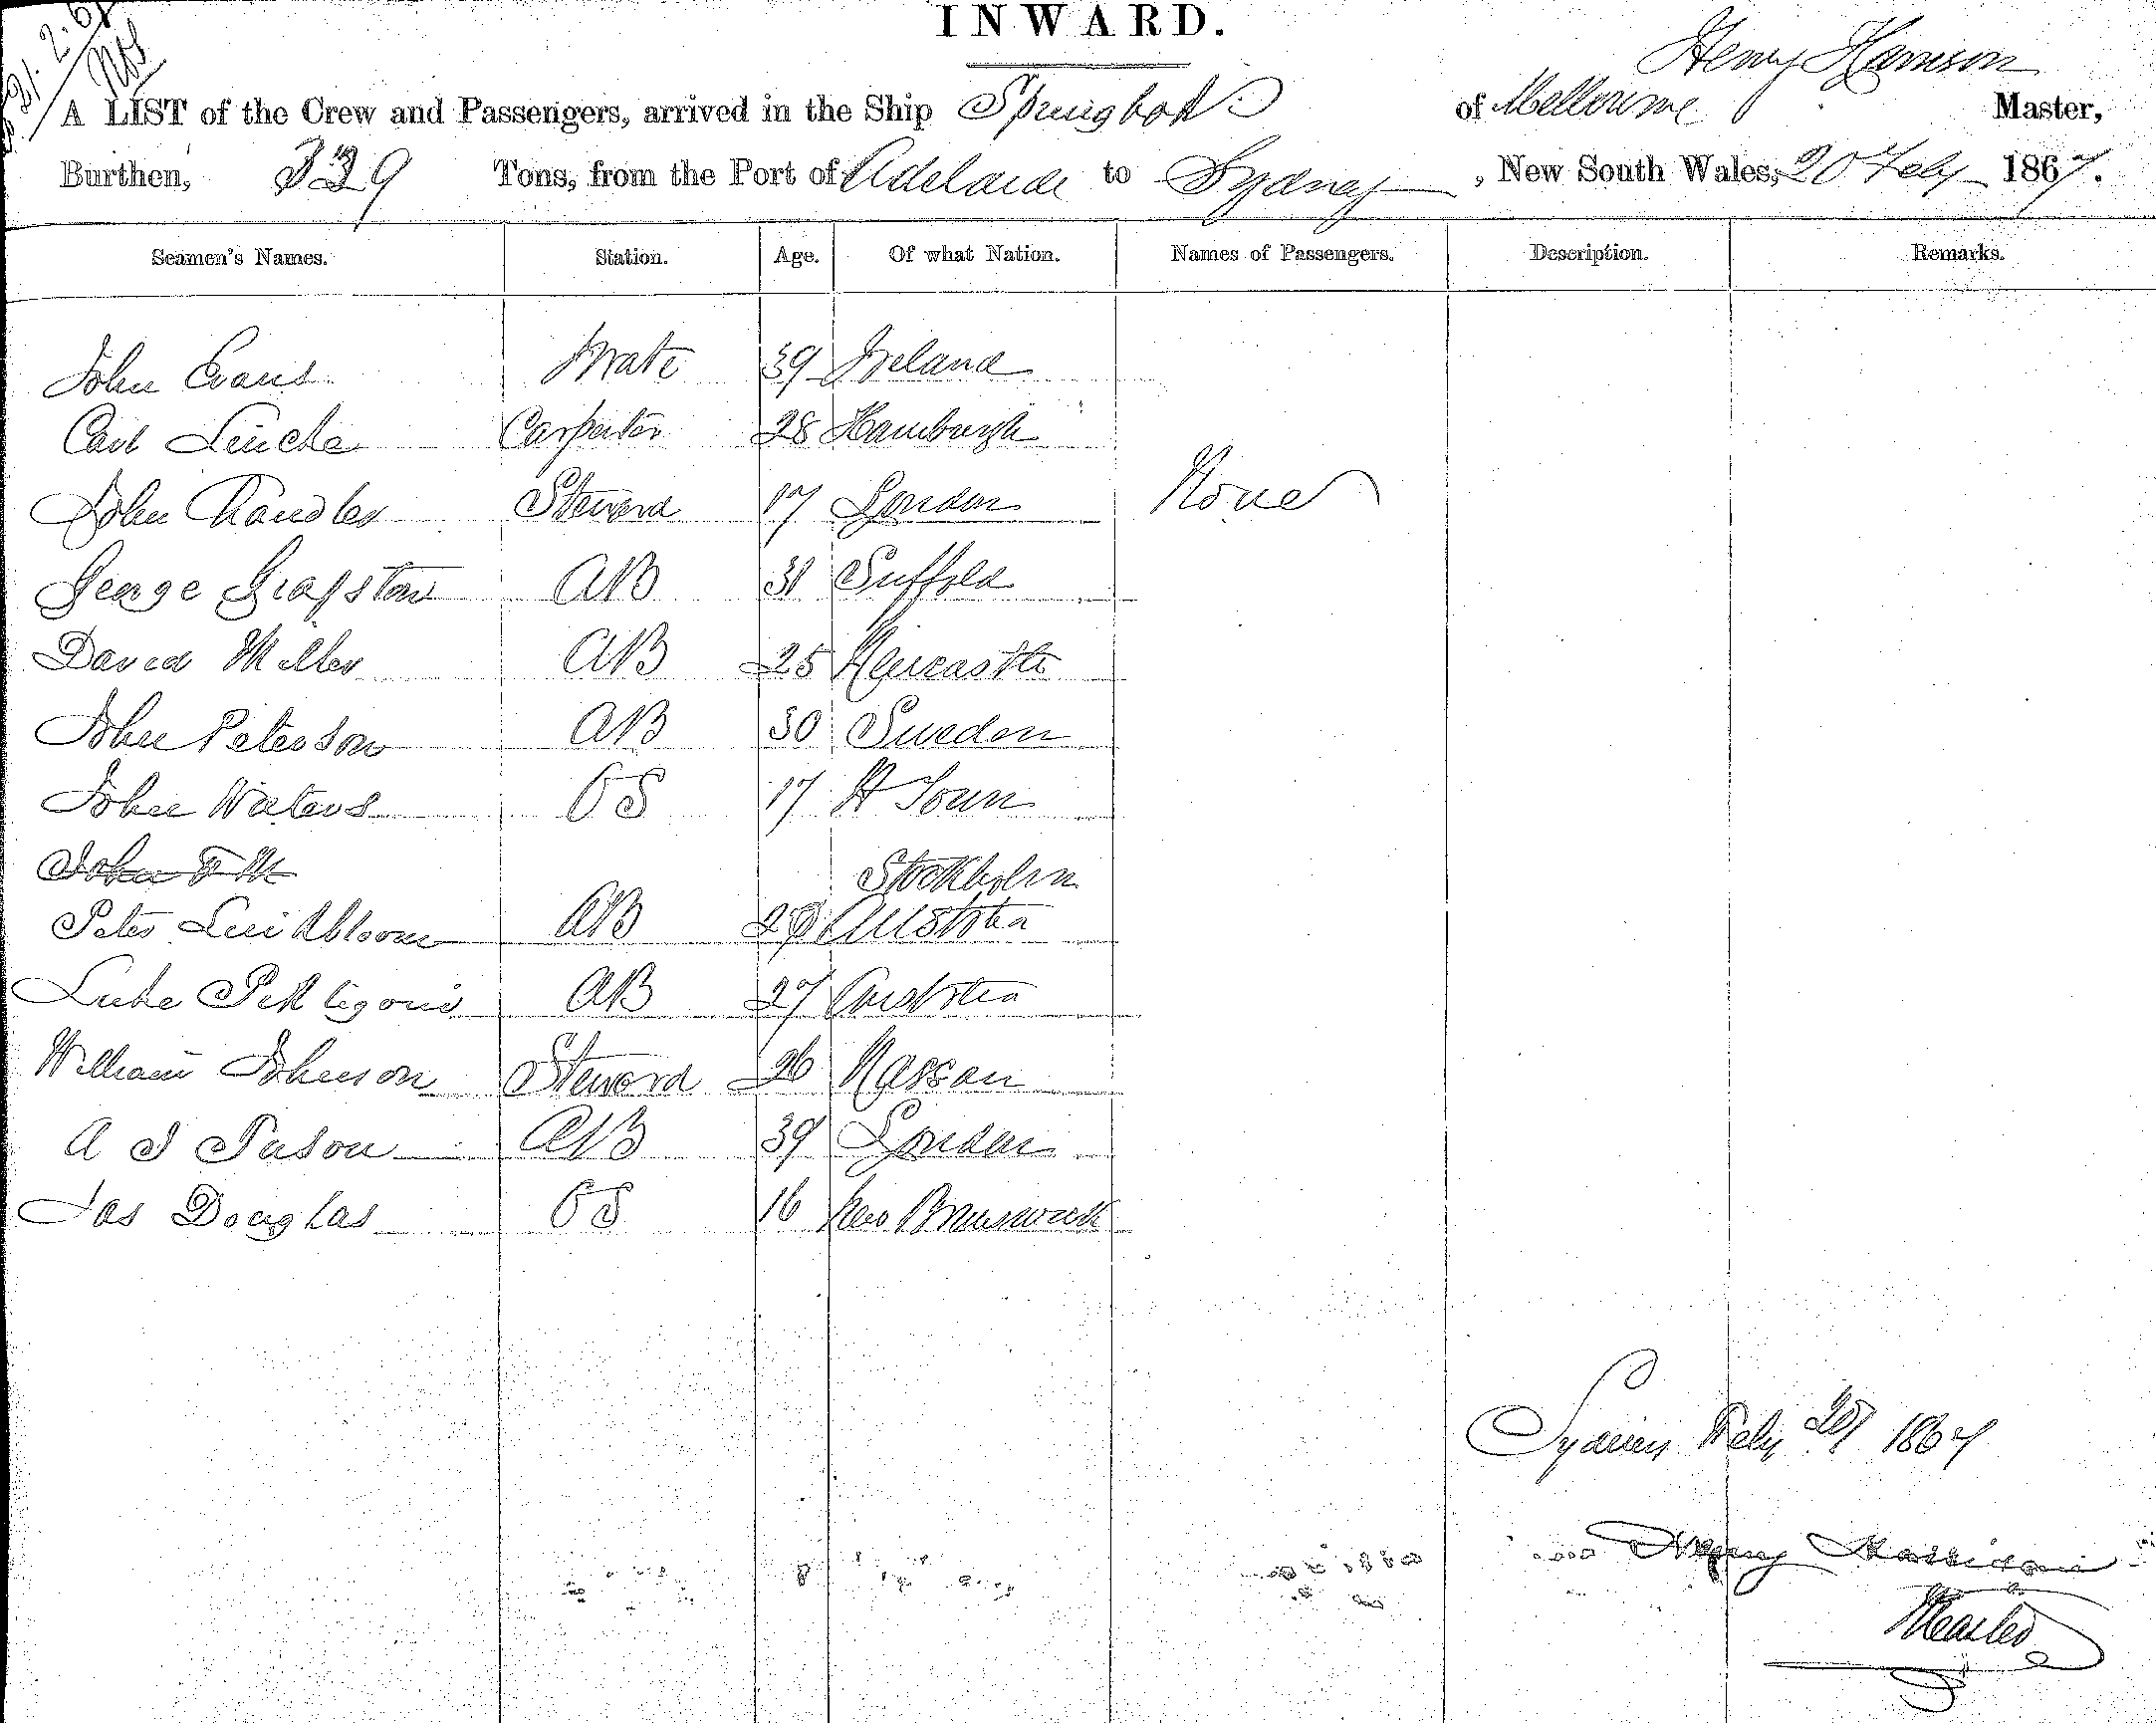 21.2.67
INWARD.
Henry Harrison
A LIST of the Crew and Passengers, arrived in the Ship Springbok of Melbourne Master,
Burthen, 339 Tons, from the Port of Adelaide to Sydney, New South Wales, 20 Feby 1867.
Seamen's Names. Station. Age. Of what Nation. Names of Passengers. Description. Remarks.
John Evans Mate 39 Ireland
Carl Lincke Carpenter 28 Hamburgh
John Chandler Steward 17 London None
George AB 31 Suffolk
David Miller AB 25 Newcastle
John Peterson AB 30 Sweden
John Waters OS 17 H Town
Stockholm
Peter AB Austria
Luke AB 27 Austria
William Johnson Steward 26 Nassau
A J AB 39 London
Jas Douglas OS 16 New Brunswick
Sydney Feby 20 1867
Henry Harrison
Master